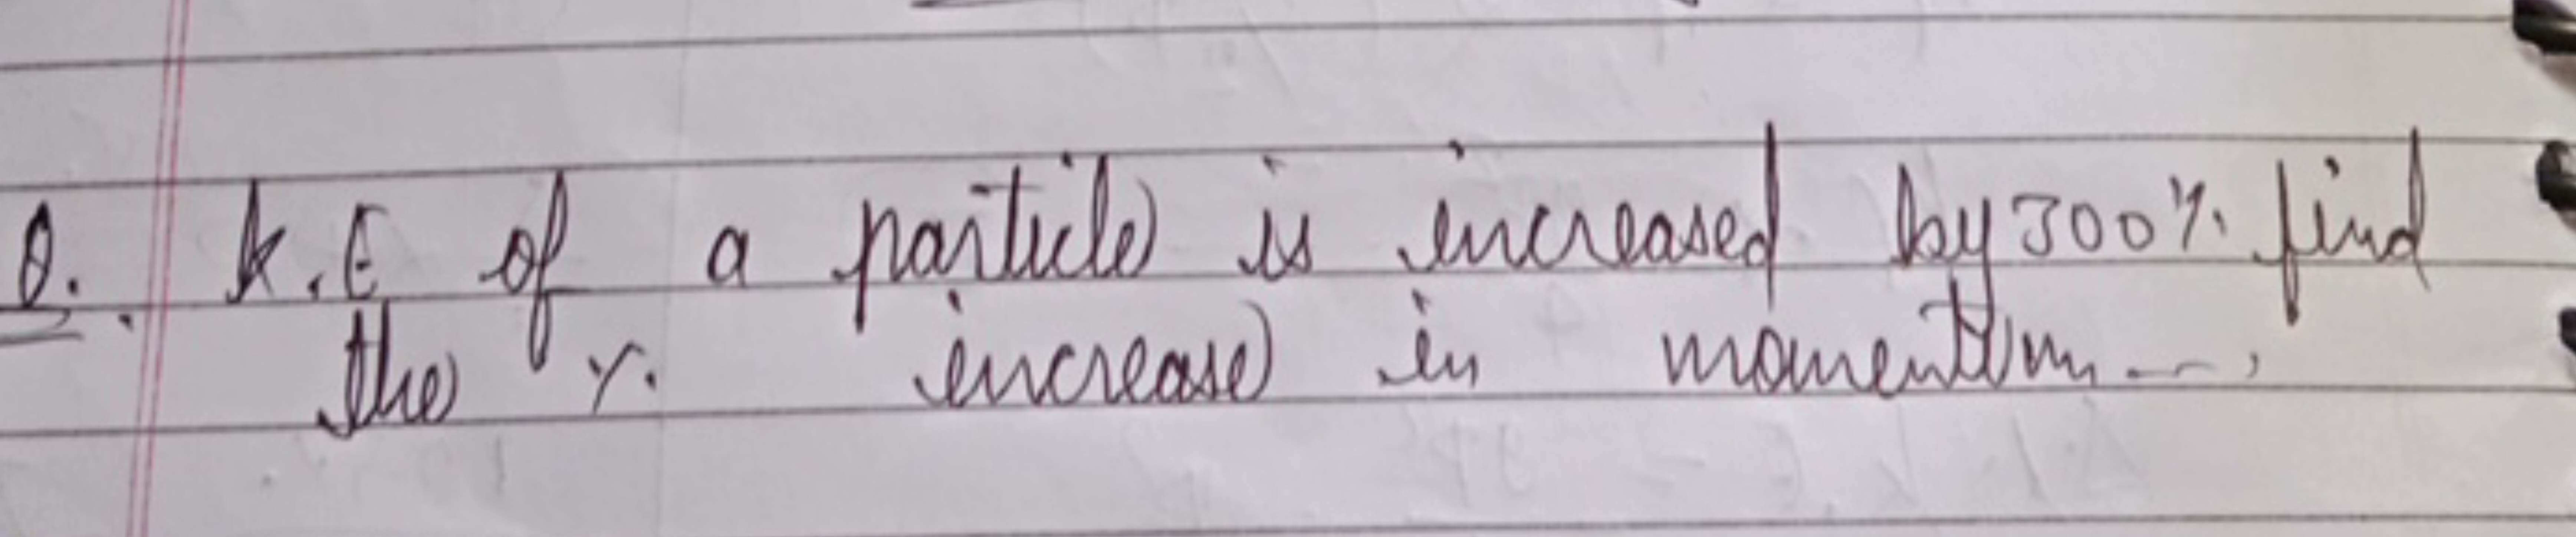 Q. K.E of a particle is increased by 300% find
the % increase in momentum ---,